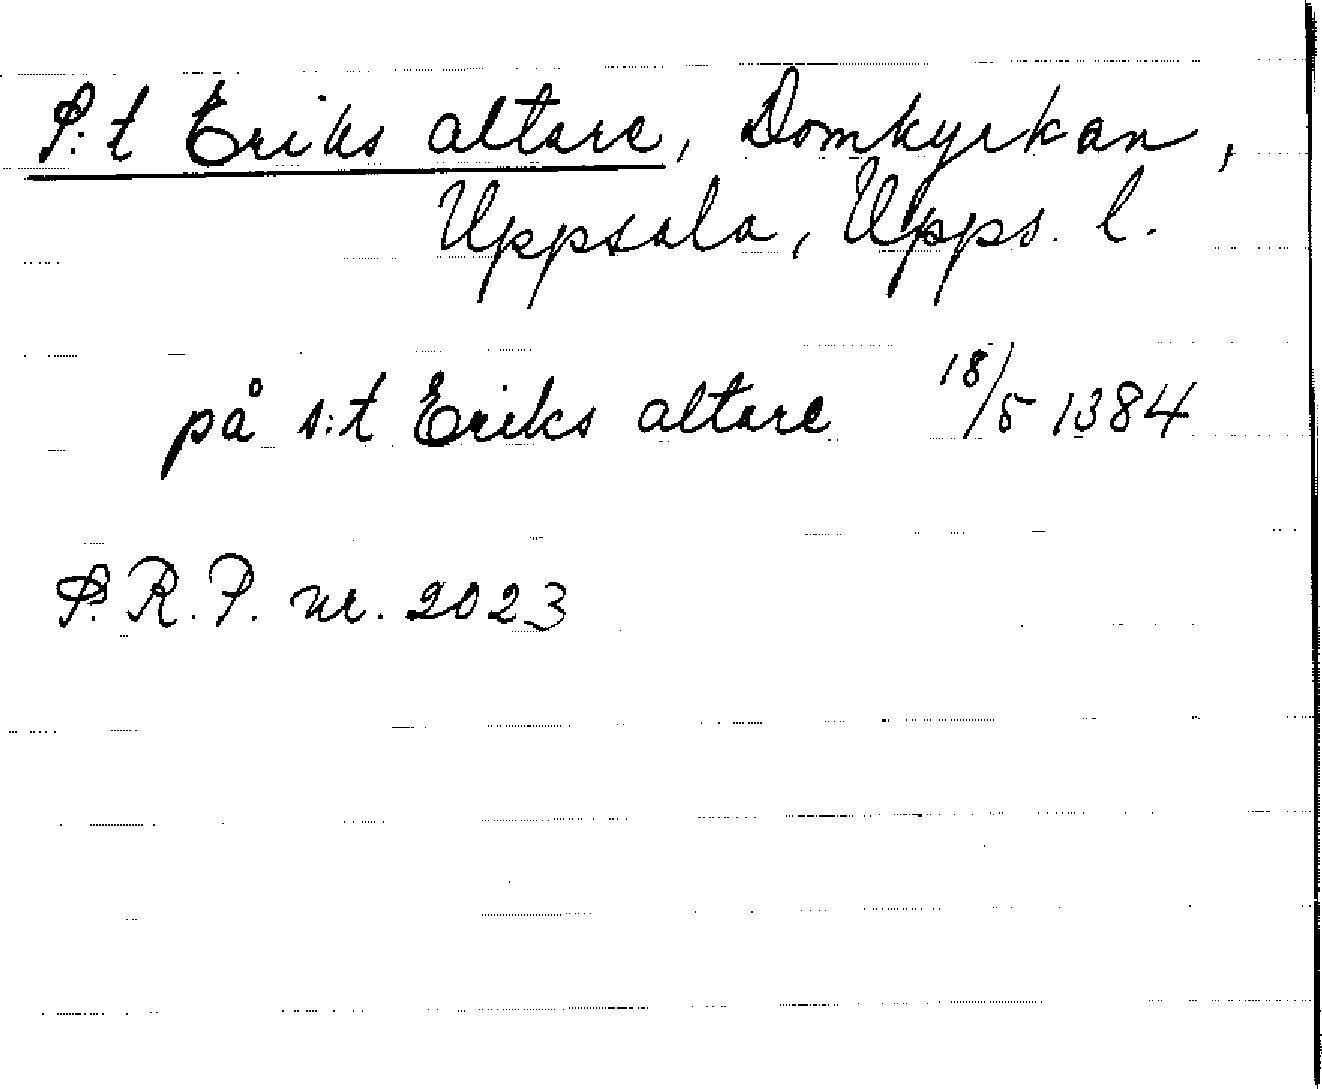 S:t Eriks altare, Domkyrkan,
Uppsala, Upps. l.
på s:t Eriks altare 18/5 1384
S.R.P. nr. 2023